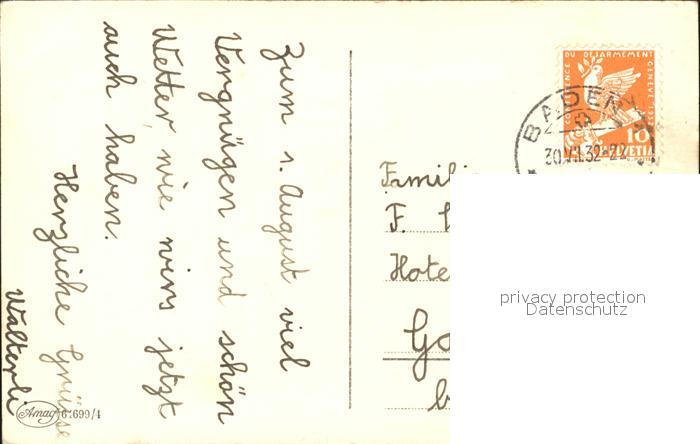 Zum 1. August viel
Vergnügen und schön
Wetter, wie wirs jetzt
auch haben.
Herzliche Grüsse
Walterli
Amag
61699/4
CONFERENCE DU DESARMEMENT GENEVE 1932
10
HELVETIA
BADEN
30.VII.32-22
Familie
F.
privacy protection
Datenschutz